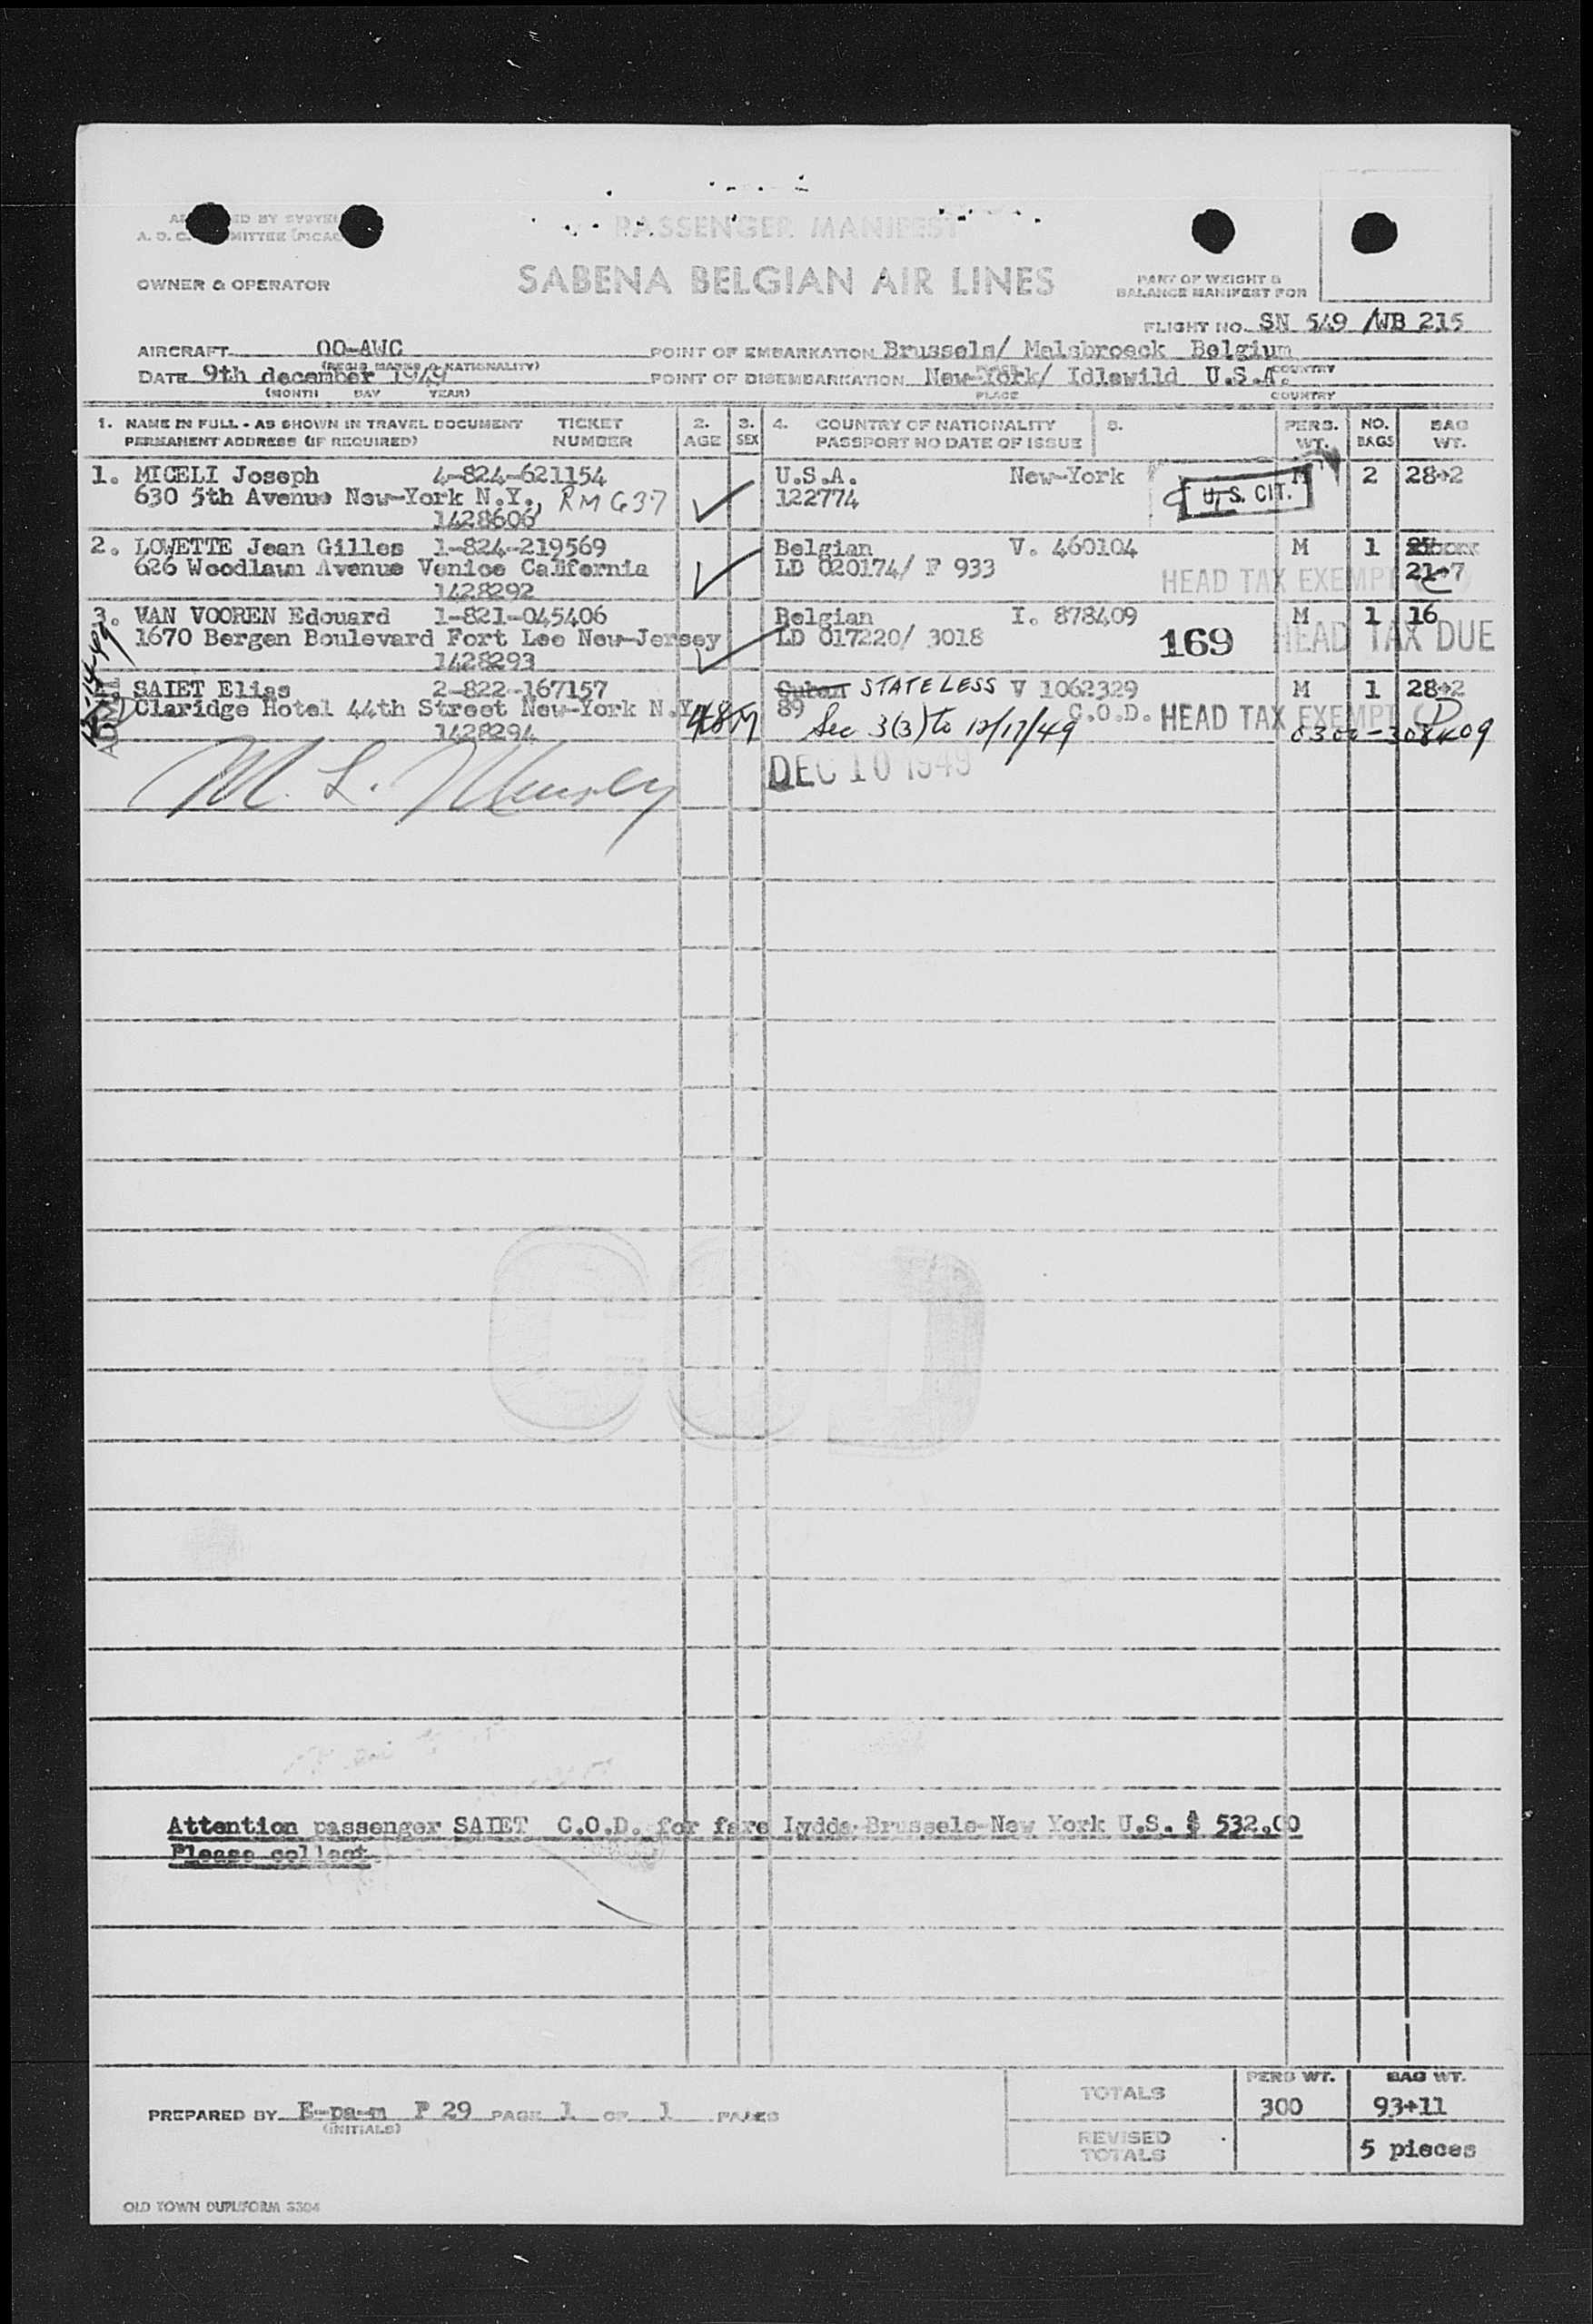 PASSENGER MANIFEST
SABENA BELGIAN AIR LINES
OWNER & OPERATOR
PART OF WEIGHT &
BALANCE MANIFEST FOR
FLIGHT NO. SN 549 /WB 215
AIRCRAFT OO-AWC POINT OF EMBARKATION Brussels/ Melsbroeck Belgium
(REGIS MARKS & NATIONALITY)
DATE 9th december 1949 POINT OF DISEMBARKATION New-York/ Idlewild U.S.A. COUNTRY
(MONTH DAY YEAR) PLACE COUNTRY
1. NAME IN FULL - AS SHOWN IN TRAVEL DOCUMENT TICKET 2. 3. 4. COUNTRY OF NATIONALITY 5. PERS. NO. BAG
PERMANENT ADDRESS (IF REQUIRED) NUMBER AGE SEX PASSPORT NO DATE OF ISSUE WT. BAGS WT.
1. MICELI Joseph 4-824-621154 U.S.A. New-York M 2 28+2
630 5th Avenue New-York N.Y., RM 637 122774 U.S. CIT.
1428606
2. LOWETTE Jean Gilles 1-824-219569 Belgian V. 460104 M 1
626 Woodlawn Avenue Venice California LD 020174/ F 933 HEAD TAX EXEMPT 21+7
1428292
3. VAN VOOREN Edouard 1-821-045406 Belgian I. 878409 M 1 16
1670 Bergen Boulevard Fort Lee New-Jersey LD 017220/ 3018 169 HEAD TAX DUE
1428293
SAIET Elias 2-822-167157 Cuban STATELESS V 1062329 M 1 28+2
Claridge Hotel 44th Street New-York N.Y. 48 M 89 C.O.D. HEAD TAX EXEMPT
1428294 Sec 3(3) to 12/17/49 0300-308409
DEC 10 1949
COD
Attention passenger SAIET C.O.D. for fare Lydda-Brussels-New York U.S. $ 532.00
Please collect
TOTALS PERS WT. BAG WT.
300 93+11
PREPARED BY E-pa-m P 29 PAGE 1 OF 1 PAGES
(INITIALS)
REVISED
TOTALS 5 pieces
OLD TOWN DUPLIFORM 3304